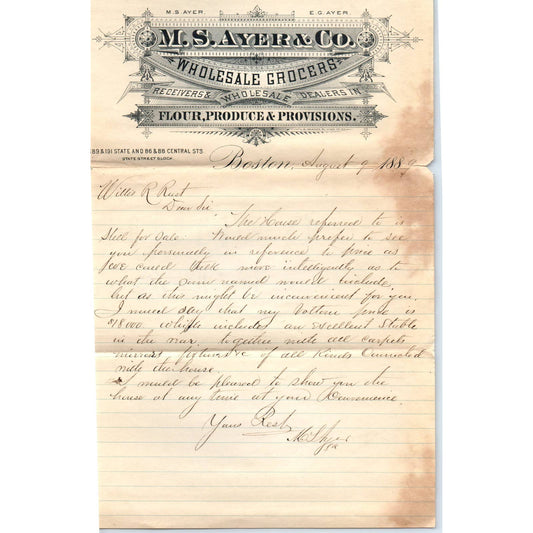 M.S. AYER. E.G. AYER.
M. S. AYER & CO.
WHOLESALE GROCERS
RECEIVERS & WHOLESALE DEALERS IN
FLOUR, PRODUCE & PROVISIONS.
89 & 191 STATE AND 86 & 88 CENTRAL STS.
STATE STREET BLOCK.
Boston, August 9 1889
Willis R Rust
Dear Sir
The House referred to is
still for Sale. Would much prefer to see
you personally in reference to price as
we could talk more intelligently as to
what the sum named would include,
but as this might be inconvenient for you,
I would say that my bottom price is
$18.000 which includes an excellent Stable
in the rear. together with all carpets
mirrors fixtures &c of all kinds Connected
with the house.
I would be pleased to show you the
house at any time at your Convenience.
Yours Rest
M S Ayer